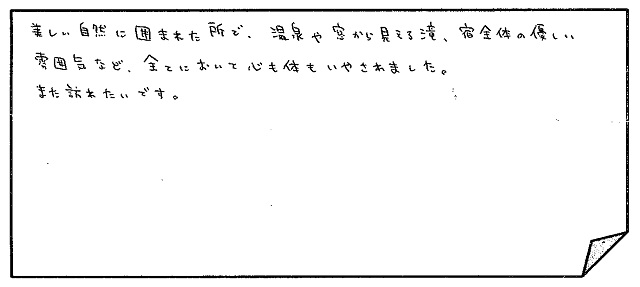 美しい自然に囲まれた所で、温泉や窓から見える滝、宿全体の優しい
雰囲気など、全てにおいて心も体もいやされました。
また訪れたいです。